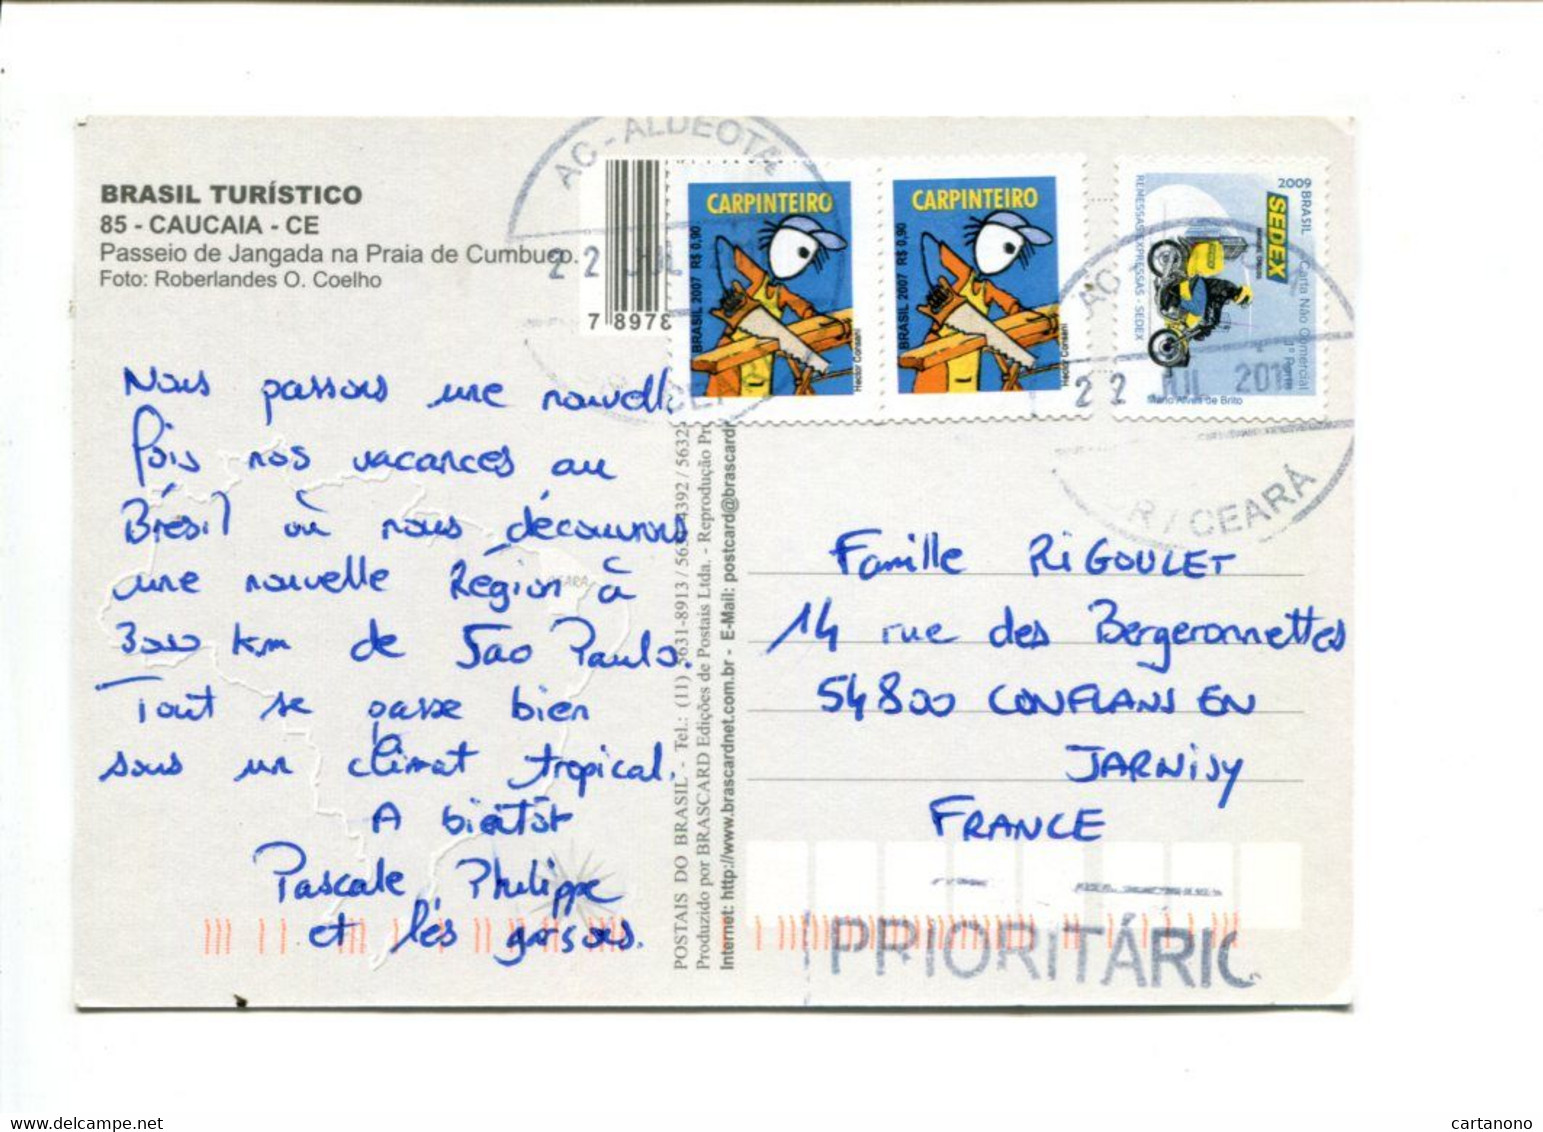 BRASIL TURÍSTICO
85 - CAUCAIA - CE
Passeio de Jangada na Praia de Cumbuco.
Foto: Roberlandes O. Coelho
7 8978
AC - ALDEOTA
22 JUL
CARPINTEIRO
BRASIL 2007 R$ 0,90
Hector Consani
CARPINTEIRO
BRASIL 2007 R$ 0,90
Hector Consani
2009 BRASIL
SEDEX
REMESSAS EXPRESSAS - SEDEX
Carta Não Comercial
1º Porte
Mario Alves de Brito
AC -
22 JUL 201
R / CEARÁ
Nous passons une nouvelle
fois nos vacances au
Brésil où nous découvrons
une nouvelle Région à
3000 km de Sao Paulo.
Tout se passe bien
sous un climat tropical.
A bientôt
Pascale Philippe
et les garsons.
CEARÁ
POSTAIS DO BRASIL - Tel.: (11) 5631-8913 / 5631-4392 / 5632
Produzido por BRASCARD Edições de Postais Ltda. - Reprodução Pr
Internet: http://www.brascardnet.com.br - E-Mail: postcard@brascard
Famille RIGOULET
14 rue des Bergeronnettes
54800 CONFLANS EN
JARNISY
FRANCE
PRIORITÁRIO
cartanono